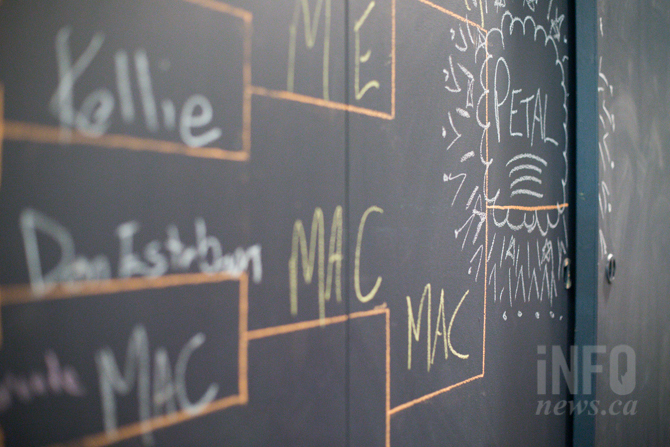 Kellie
ME
PETAL
Don Esteban
MAC
MAC
MAC
iNFO
news.ca